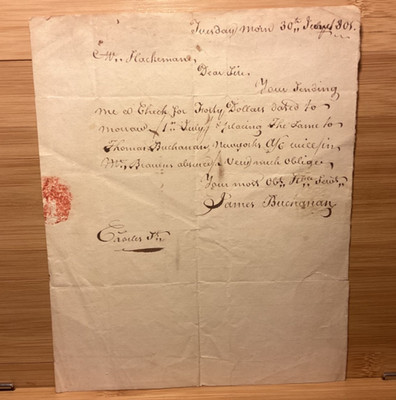 Tuesday Morn 30th
Dear Sir.
Your Sending
me a Check for Forty Dollars dated to
morrow 1st July & placing the Same to
Thomas Buchanan Newyorks A/c will in
Mr. absence Very much oblige
Your most Obt. Servt.
James Buchanan